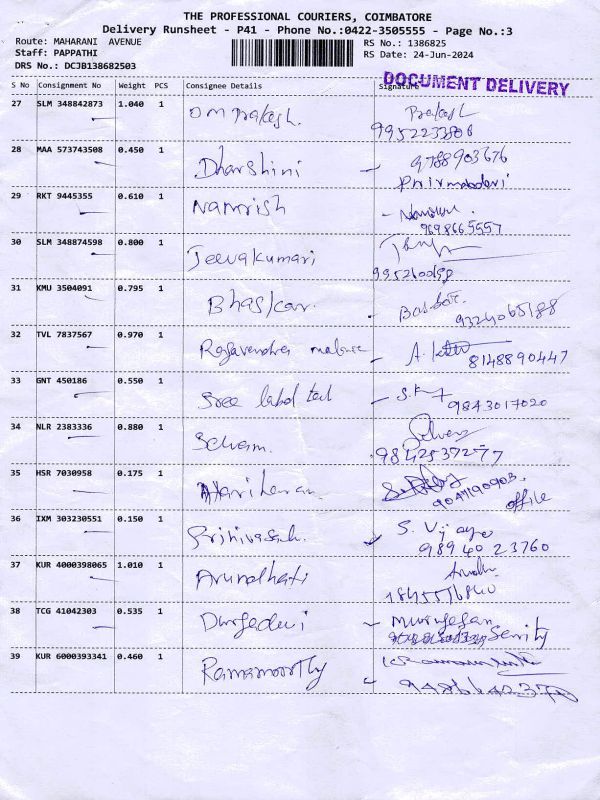 THE PROFESSIONAL COURIERS, COIMBATORE
Delivery Runsheet - P41 - Phone No.:0422-3505555 - Page No.:3
Route: MAHARANI AVENUE RS No.: 1386825
Staff: PAPPATHI RS Date: 24-Jun-2024
DRS No.: DCJB138682503
DOCUMENT DELIVERY
S No Consignment No Weight PCS Consignee Details Signature
27 SLM 348842873 1.040 1 Omprakash. Prakash
9952233806
28 MAA 573743508 0.450 1 Dharshini 9788903676
29 RKT 9445355 0.610 1 Namrish
9698665557
30 SLM 348874598 0.800 1 Jeevakumari
31 KMU 3504091 0.795 1 Bhaskar.
9324065188
32 TVL 7837567 0.970 1 Ragavendra
8148890447
33 GNT 450186 0.550 1 Sree label
9843017020
34 NLR 2383336 0.880 1 Selvam.
9842537277
35 HSR 7030958 0.175 1 Hariharan
office
36 IXM 303230551 0.150 1 S. Vijaya
98940 23760
37 KUR 4000398065 1.010 1 Arundhati
38 TCG 41042303 0.535 1 Durgadevi Murugesan
39 KUR 6000393341 0.460 1 Ramamoorthy